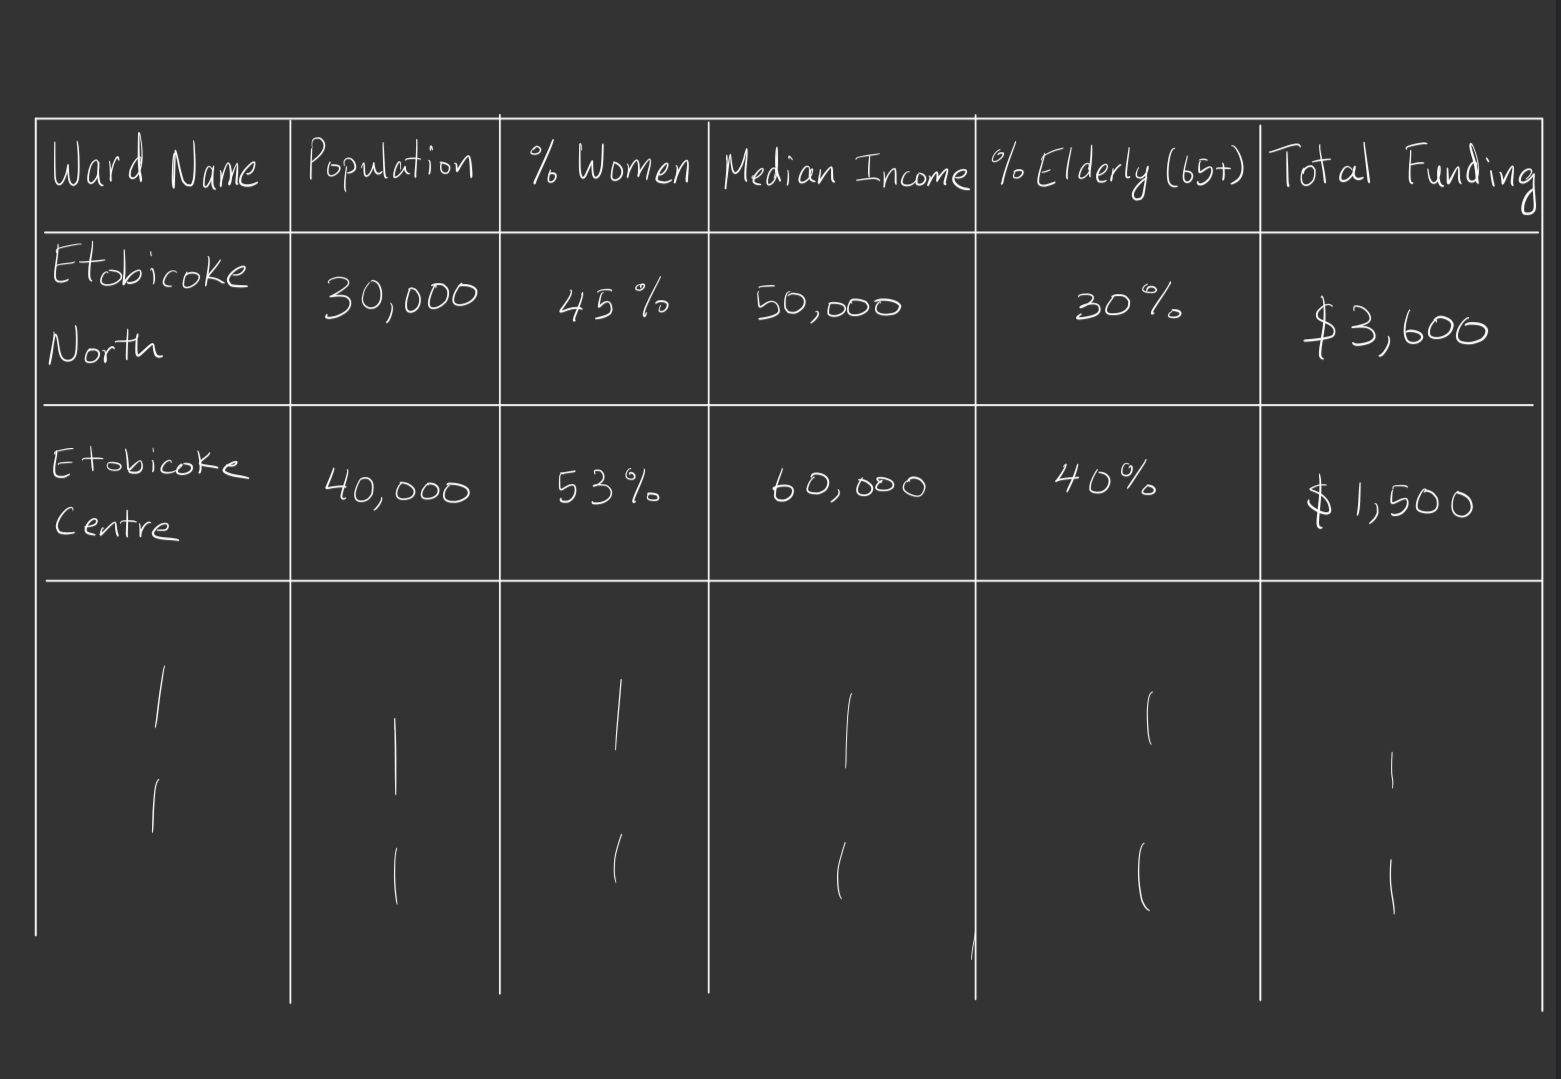 Ward Name Population % Women Median Income % Elderly (65+) Total Funding
Etobicoke North 30,000 45% 50,000 30% $3,600
Etobicoke Centre 40,000 53% 60,000 40% $1,500